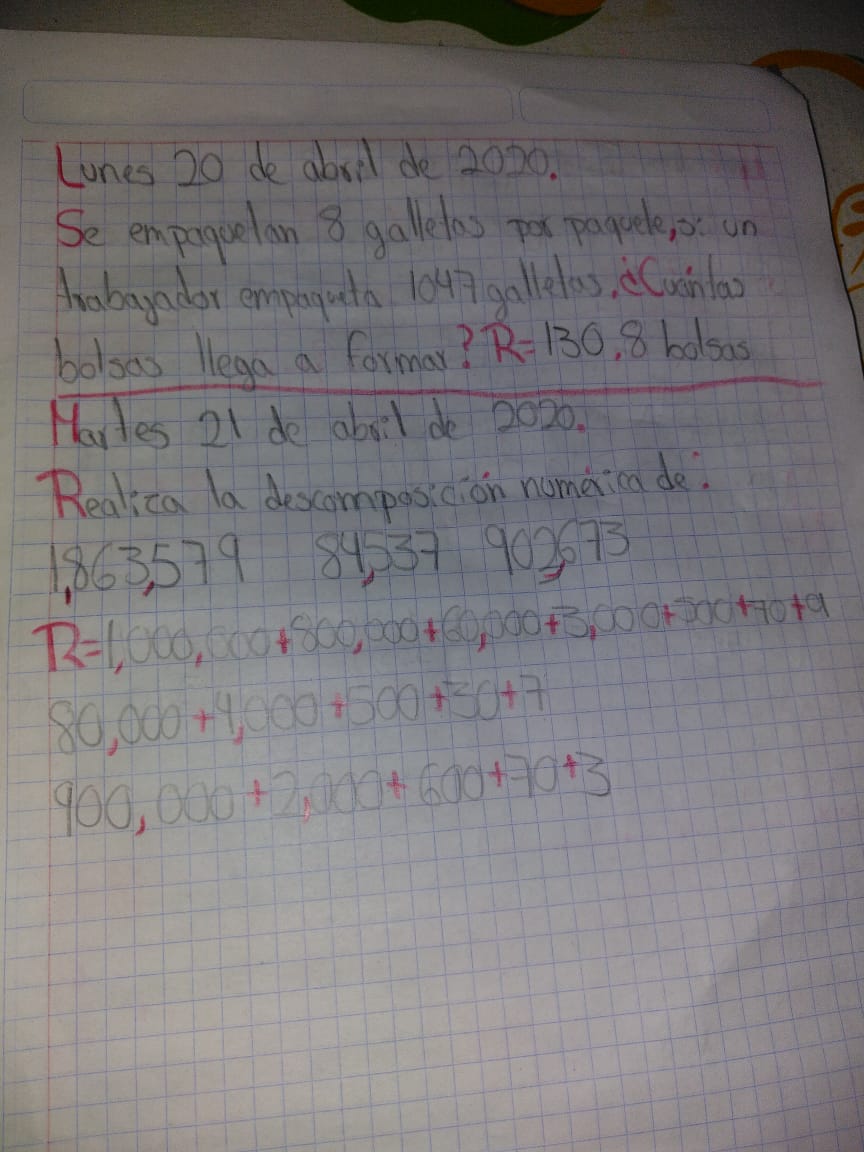 Lunes 20 de abril de 2020.
Se empaquetan 8 galletas por paquete, si un
trabajador empaqueta 1047 galletas. ¿Cuántas
bolsas llega a formar? R=130.8 bolsas
Martes 21 de abril de 2020.
Realiza la descomposición numérica de:
1,863,579 84,537 902,673
R=1,000,000+800,000+60,000+3,000+500+70+9
80,000+4,000+500+30+7
900,000+2,000+600+70+3